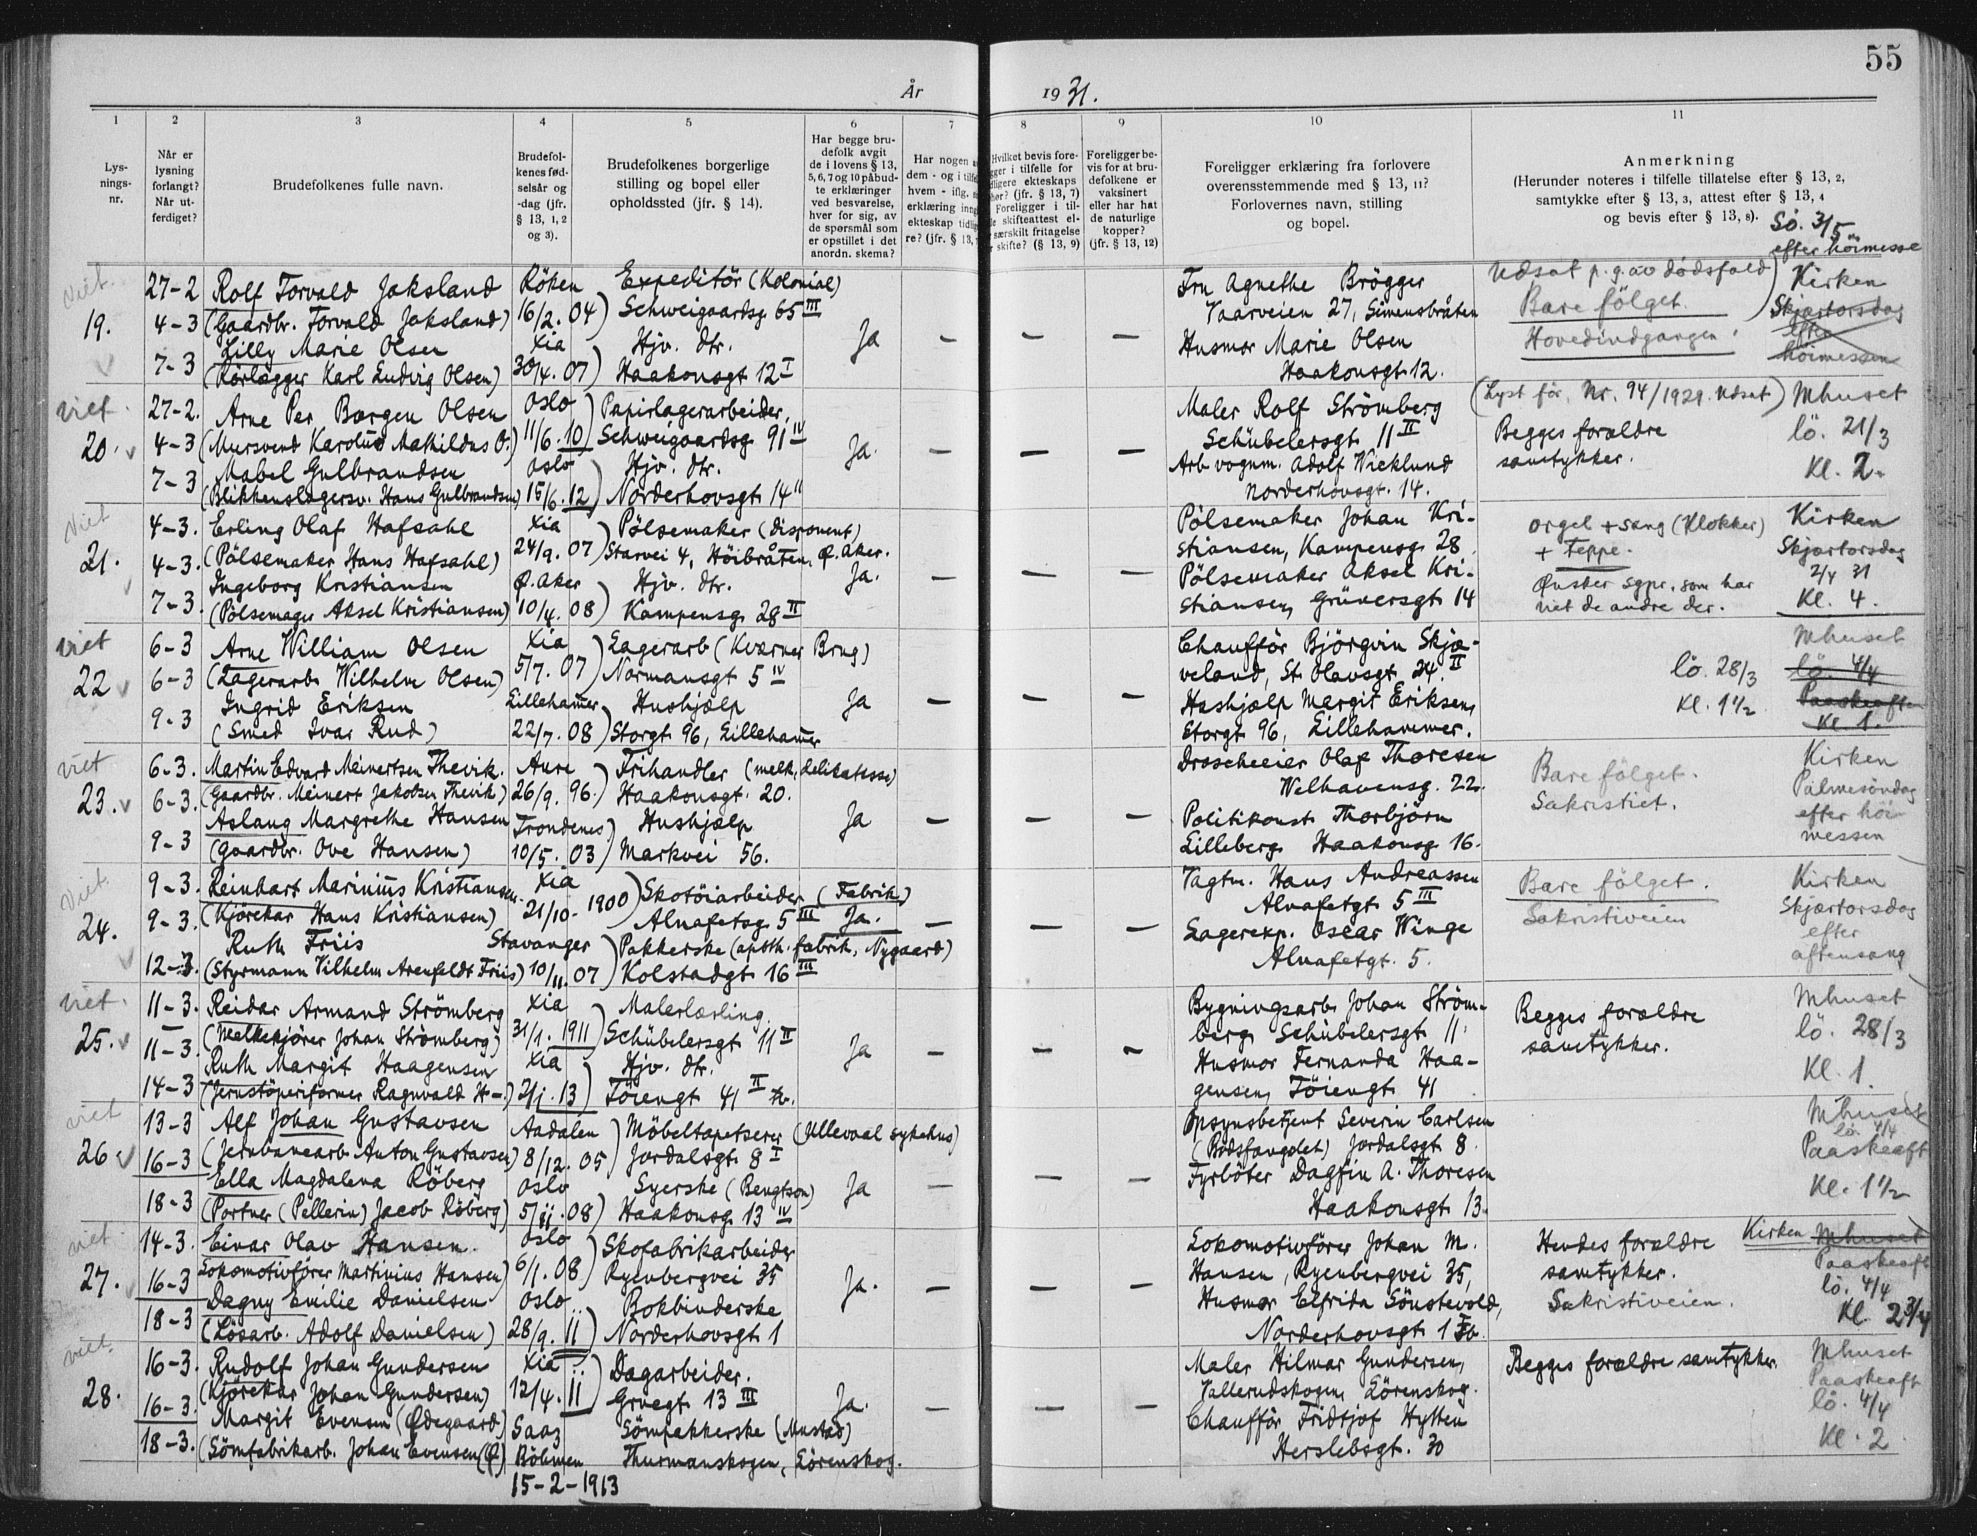 55
År 1931.
1 2 3 4 5 6 7 8 9 10 11
Lys-
nings-
nr.
Når er
lysning
forlangt?
Når ut-
ferdiget?
Brudefolkenes fulle navn.
Brudefol-
kenes fød-
selsår og
-dag (jfr.
§ 13, 1, 2
og 3).
Brudefolkenes borgerlige
stilling og bopel eller
opholdssted (jfr. § 14).
Har begge bru-
defolk avgit
de i lovens § 13,
5, 6, 7 og 10 påbud-
te erklæringer
ved besvarelse,
hver for sig, av
de spørsmål som
er opstillet i det
anordn. skema?
Har nogen
dem - og i
hvem - iflg.
erklæring
ekteskap
re? (jfr. § 13,
Hvilket bevis fore-
i tilfelle for
ekteskaps
(jfr. § 13, 7)
Foreligger i til-
skifteattest el-
særskilt fritagelse
skifte? (§ 13, 9)
Foreligger be-
vis for at bru-
defolkene er
vaksinert
eller har hat
de naturlige
kopper?
(jfr. § 13, 12)
Foreligger erklæring fra forlovere
overensstemmende med § 13, 11?
Forlovernes navn, stilling
og bopel.
Anmerkning
(Herunder noteres i tilfelle tillatelse efter § 13, 2,
samtykke efter § 13, 3, attest efter § 13, 4
og bevis efter § 13, 8).
Sö. 3/5
efter höimesse
viet. 27-2 Rolf Torvald Jaksland Röken Expeditör (Kolonial) Fru Agnethe Brögger Udsat p. g. av dødsfald) Kirken
19. 4-3 (Gaardbr. Torvald Jaksland) 16/2. 04) Schweigaardsg 65 III Vaarveien 27, Simensbråten Bare fölget. Skjærtorsdag
Lilly Marie Olsen Xia Hjv. dtr. Ja — — — Husmor Marie Olsen Hovedindgangen. efter
7-3 (Rörlægger Karl Ludvig Olsen) 30/4. 07) Haakonsgt 12 I Haakonsgt 12. höimessen
viet. 27-2. Arne Per Borgen Olsen Oslo Papirlagerarbeider, Maler Rolf Strömberg (Lyst för. Nr. 94/1929. Udsat) Mhuset
20. 4-3 (Mursvend Karolus Mathildus O.) 11/6. 10) Schweigaardsg 91 IV Ja. — — — Schübelersgt 11 II Begges forældre lö. 21/3
7-3 Mabel Gulbrandsen Oslo Hjv. dtr. Arb vognm. Adolf Wicklund samtykker. Kl. 2.
(Blikkenslagersv. Hans Gulbrandsen) 15/6. 12) Norderhovsgt 14 II Norderhovsgt. 14.
viet 4-3. Erling Olaf Hafsahl Xia Pölsemaker (Disponent) Pölsemaker Johan Kri- orgel + sang (Klokker) Kirken
21. 4-3. (Pölsemaker Hans Hafsahl) 24/9. 07) Starvei 4, Höibråten, Ø. Aker. stiansen, Kampensg 28. + Teppe. Skjærtorsdag
Ingeborg Kristiansen Ø. Aker Hjv. dtr. Ja. — — — Pölsemaker Aksel Kri- Ønsker sgpr. som har 2/4 31
7-3. (Pölsemager Aksel Kristiansen) 10/4. 08) Kampensg 28 II stiansen, Grünersgt 14 viet de andre der. Kl. 4.
viet 6-3 Arne William Olsen Xia Lagerarb (Kværner Brug) Chaufför Björgvin Skjæ- Mhuset
22 6-3 (Lagerarb Wilhelm Olsen) 5/7. 07) Normansgt 5 IV veland, St. Olavsgt 24. II lö. 28/3 lö. 4/4
Ingrid Eriksen Lillehamer Hushjælp Ja — — — Hushjælp Margit Eriksen, Kl. 1 1/2 Paaskeaften
9-3 (Smed Ivar Rud) 22/7. 08) Storgt 96, Lillehamer Storgt 96, Lillehammer. Kl. 1
viet 6-3. Martin Edvard Meinertsen Thevik. Aure Frihandler (melk, delikatesse) Droscheeier Olaf Thoresen Bare fölget. Kirken
23. 6-3. (Gaardbr. Meinert Jakobsen Thevik) 26/9. 96.) Haakonsgt. 20. Welhavensg. 22. Sakristiet. Palmesöndag
Aslaug Margrethe Hansen Trondenes Hushjælp Ja — — — Politikonst Thorbjörn efter höi-
9-3 (Gaardbr. Ove Hansen) 10/5. 03) Markvei 56. Lilleberg Haakonsg 16. messen
viet. 9-3. Reinhart Marinius Kristiansen. Xia Skotöiarbeider (Fabrik) Vagtm. Hans Andreassen Bare fölget. Kirken
24. 9-3. (Kjörekar Hans Kristiansen) 21/10. 1900) Alnafetsg 5 III Ja. — — — Alnafetgt 5 III Sakristiveien Skjærtorsdag
Ruth Friis Stavanger Pakkerske (apoth. fabrik, Nygaard) Lagerexp. Oscar Winge efter
12-3. (Styrmann Vilhelm Arenfeldt Friis) 10/11. 07) Kolstadgt 16 III Alnafetgt. 5. aftensang
viet. 11-3. Reidar Armand Strömberg Xia Malerlærling. Bygningsarb Johan Ström- Begges forældre Mhuset
25. 11-3. (Melkekjörer Johan Strömberg) 31/1. 1911) Schübelersgt 11 II berg Schübelersgt 11. samtykker. lö. 28/3
Ruth Margit Haagensen Xia Hjv. dtr. Ja — — — Husmor Fernanda Haa- Kl. 1.
14-3 (Jernstöperiformer Ragnvald H-.) 2/1. 13) Töiengt 41 II gensen, Töiengt 41
viet 13-3 Alf Johan Gustavsen Aadalen Möbeltapetserer (Ullevaal sykehus) Opsynsbetjent Severin Carlsen Mhuset
26. 16-3 (Jernbanearb Anton Gustavsen) 8/12. 05) Jordalsgt 8 I (Bodsfængslet) Jordalsgt 8. lö. 4/4
Ella Magdalena Röberg Oslo Syerske (Bengtson) Ja — — — Fyrböter Dagfin A. Thoresen Paaskeaft
18-3 (Portner (Pellerin) Jacob Röberg) 5/11. 08) Haakonsg 13 IV Haakonsgt 13. Kl. 1 1/2
viet. 14-3. Einar Olav Hansen. Oslo Skofabrikarbeider Lokomotivförer Johan M. Hendes forældre Kirken Mhuset
27. 16-3 Lokomotivförer Martinius Hansen) 6/1. 08) Ryenbergvei 35 Ja. — — — Hansen, Ryenbergvei 35, samtykker. Paaskeaft
Dagny Emilie Danielsen Oslo Bokbinderske Husmor Elfrida Sönstevold, Sakristiveien. lö. 4/4
18-3 (Lösarb. Adolf Danielsen) 28/9. 11) Norderhovsgt 1 Norderhovsgt 1 Kl. 2 3/4
viet. 16-3. Rudolf Johan Gundersen Xia Dagarbeider. Maler Hilmar Gundersen, Begges forældre samtykker. Mhuset
28. 16-3. (Kjörekar Johan Gundersen) 12/4. 11) Gruegt 13 III Ja. — — — Vallerudskogen, Lörenskog. Paaskeaft
Margit Evensen (Ødegaard) Saaz Sömpakkerske (Mustad) Chaufför Fridtjof Hytten lö. 4/4
18-3. (Sömfabrikarb. Johan Evensen (Ø) Böhmen Thurmanskogen, Lörenskog. Herslebsgt. 30 Kl. 2
15-2-1913